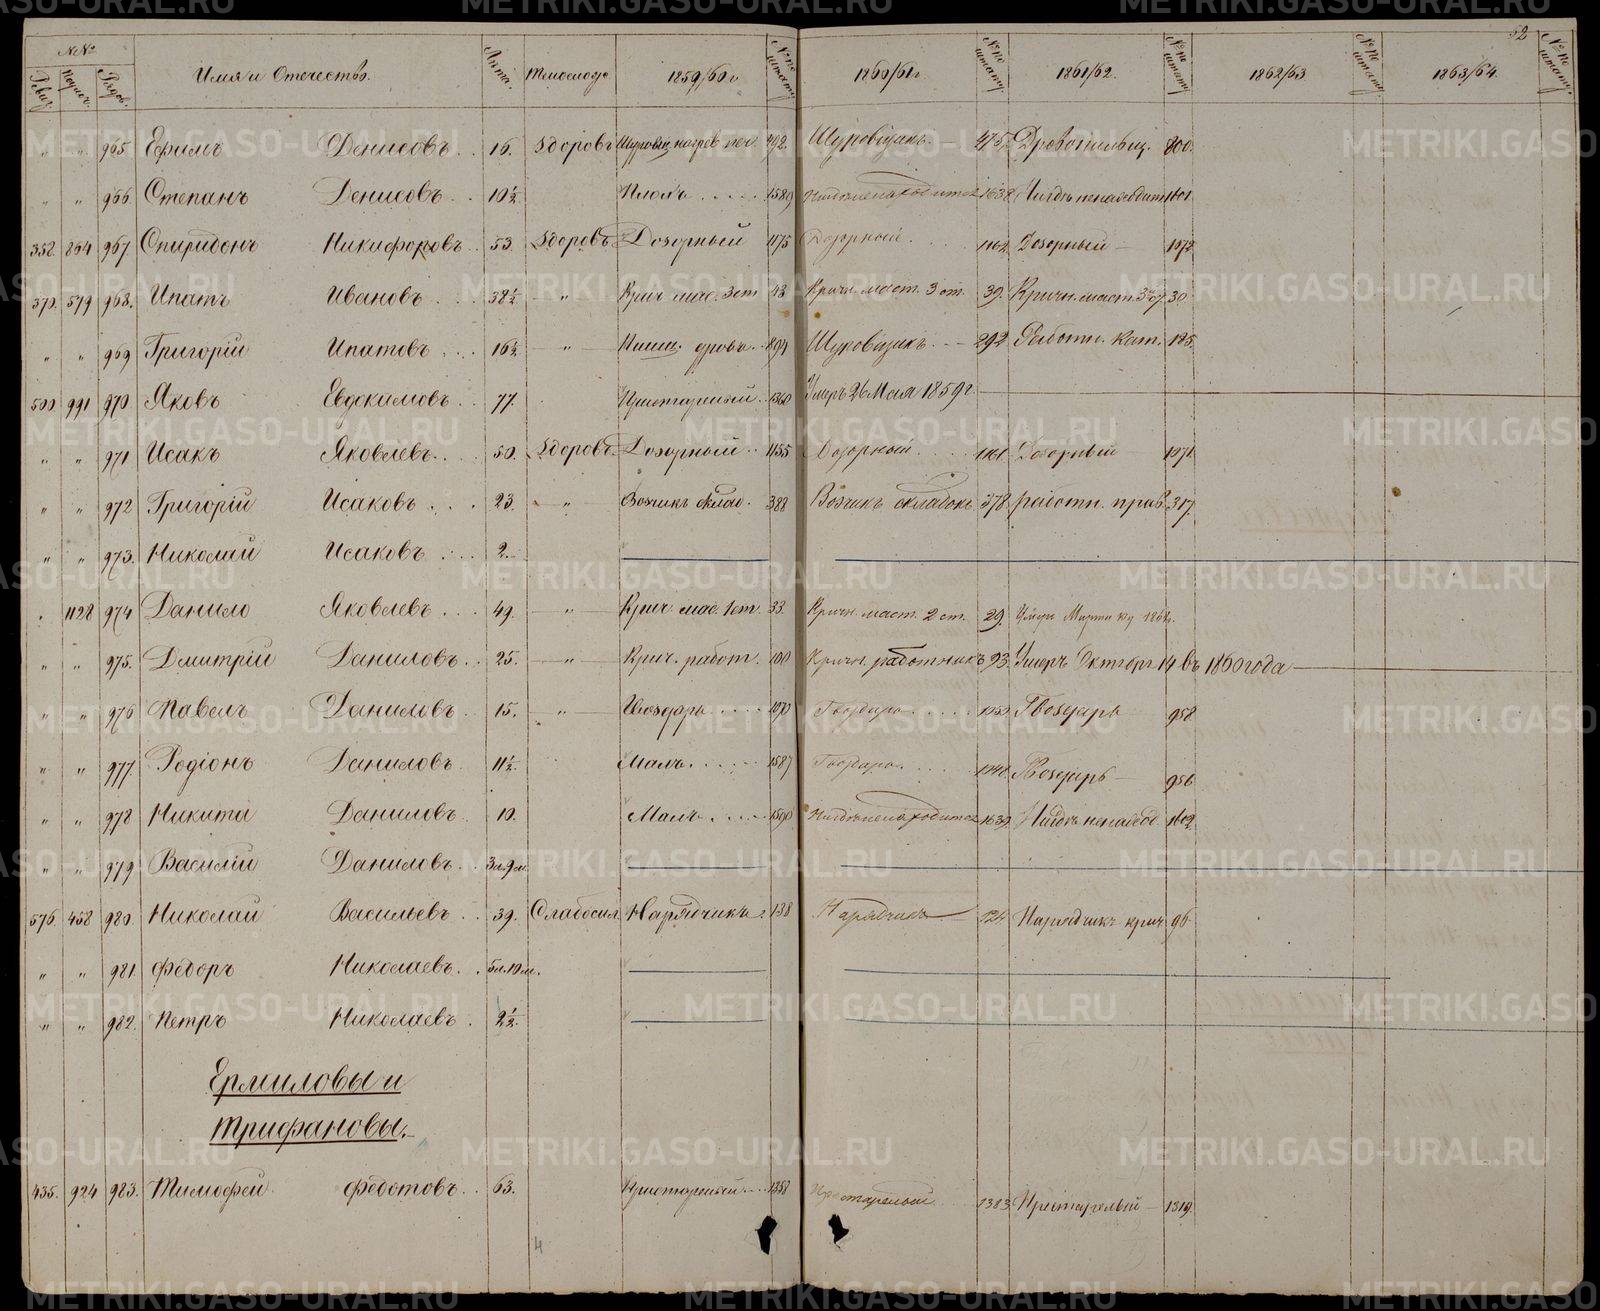 52
№№ Имя и Отечество. Лѣта. Тѣлослож. 1859/60 г. № по штату 1860/61 г. № по штату. 1861/62. № по штату 1862/63 № по штату. 1863/64. № по штату.
Ревиз. Рядов.
" " 965 Ефимъ Денисовъ . . 16. Здоровъ 492. Шуровщикъ. — 475. 800.
" " 966 Степанъ Денисовъ . . 10½ 1589 1638 1601
352. 864 967. Спиридонъ Никифоровъ . . 53. Здоровъ Дозорный 1175 Дозорный . . . 1162. Дозорный — 1072
373. 579 968. Ипатъ Ивановъ . . . 38½ — " — Крич. маст. 3 ст 43 Кричн. маст. 3 ст. 39. Кричн. маст. 3 ст. 30
" " 969 Григорій Ипатовъ . . . 16½ — " — дровъ . . 894 Шуровщикъ . — 292 Работн. 185.
500 991 970 Яковъ Евдокимовъ . . 77. Престарелый . . 1360 Умеръ 26 Мая 1859 г. —
" " 971 Исакъ Яковлевъ . . . 50. Здоровъ Дозорный . . 1155 Дозорный . . . . 1161. Дозорный — 1071
" " 972 Григорій Исаковъ . . . 23. — " — Возчикъ склад. . 388 Возчикъ 378. работн. 317.
" " 973. Николай Исаковъ . . . 2. —
" 1128 974 Данило Яковлевъ . . . 49. — " — Крич. мас. 1 ст. 33. Кричн. маст. 2 ст. 29. Умеръ Марта
" " 975. Дмитрій Даниловъ . . 25. — " — Крич. работ. . 100 Кричн. работникъ 93. Умеръ Октября 14 въ 1860 года —
" " 976 Павелъ Даниловъ . . 15. — " — Гвоздарь . . . . 1070 Гвоздарь . . . . Гвоздарь — 958
" " 977. Родіонъ Даниловъ . 11½. Малъ . . . . . 1587 Гвоздарь . . . . Гвоздарь — 956
" " 978 Никита Даниловъ . . 10. Малъ . . . . 1590 1639. 1602
" " 979 Василій Даниловъ . . 3 л. 9 м.
576. 458 980. Николай Васильевъ . . 39. Слабосил. Нарядчикъ . 138 Нарядчикъ — 124 Нарядчикъ крич. 96.
" " 981. Федоръ Николаевъ . . 5 л. 10 м.
" " 982. Петръ Николаевъ . 2½.
Ермиловы и
Трифановы.
435. 924 983. Тимофей Федотовъ . . 63. Престарелый . . . 1358 Престарелый 1383. Престарелый — 1319.
4
METRIKI.GASO-URAL.RU